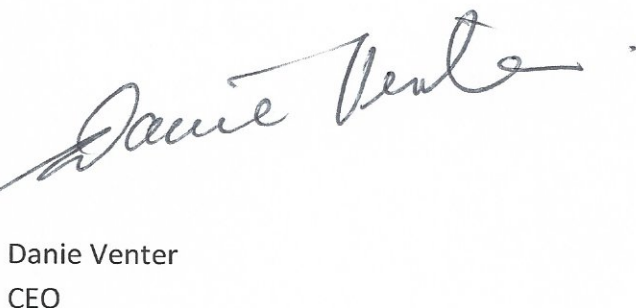 Danie Venter
Danie Venter
CEO